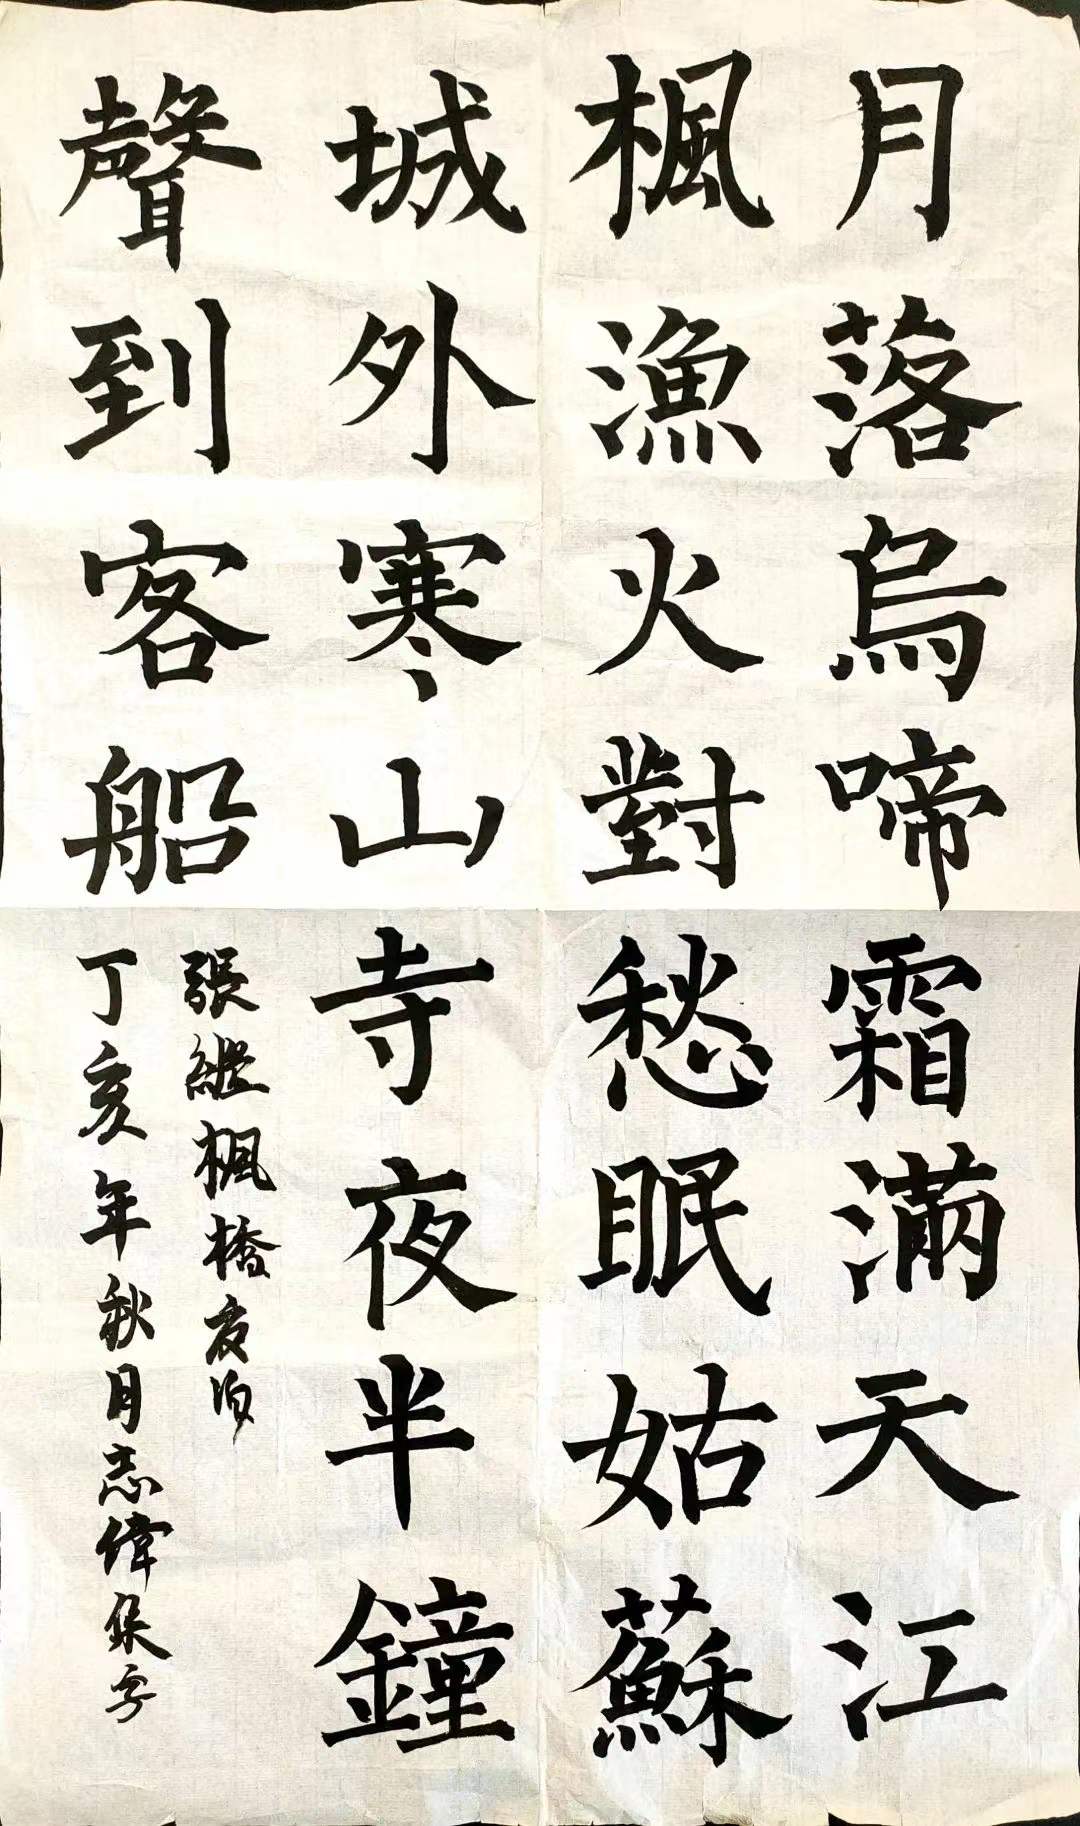 月落烏啼霜滿天江
楓漁火對愁眠姑蘇
城外寒山寺夜半鐘
聲到客船
張繼楓橋夜泊
丁亥年秋月志偉集字